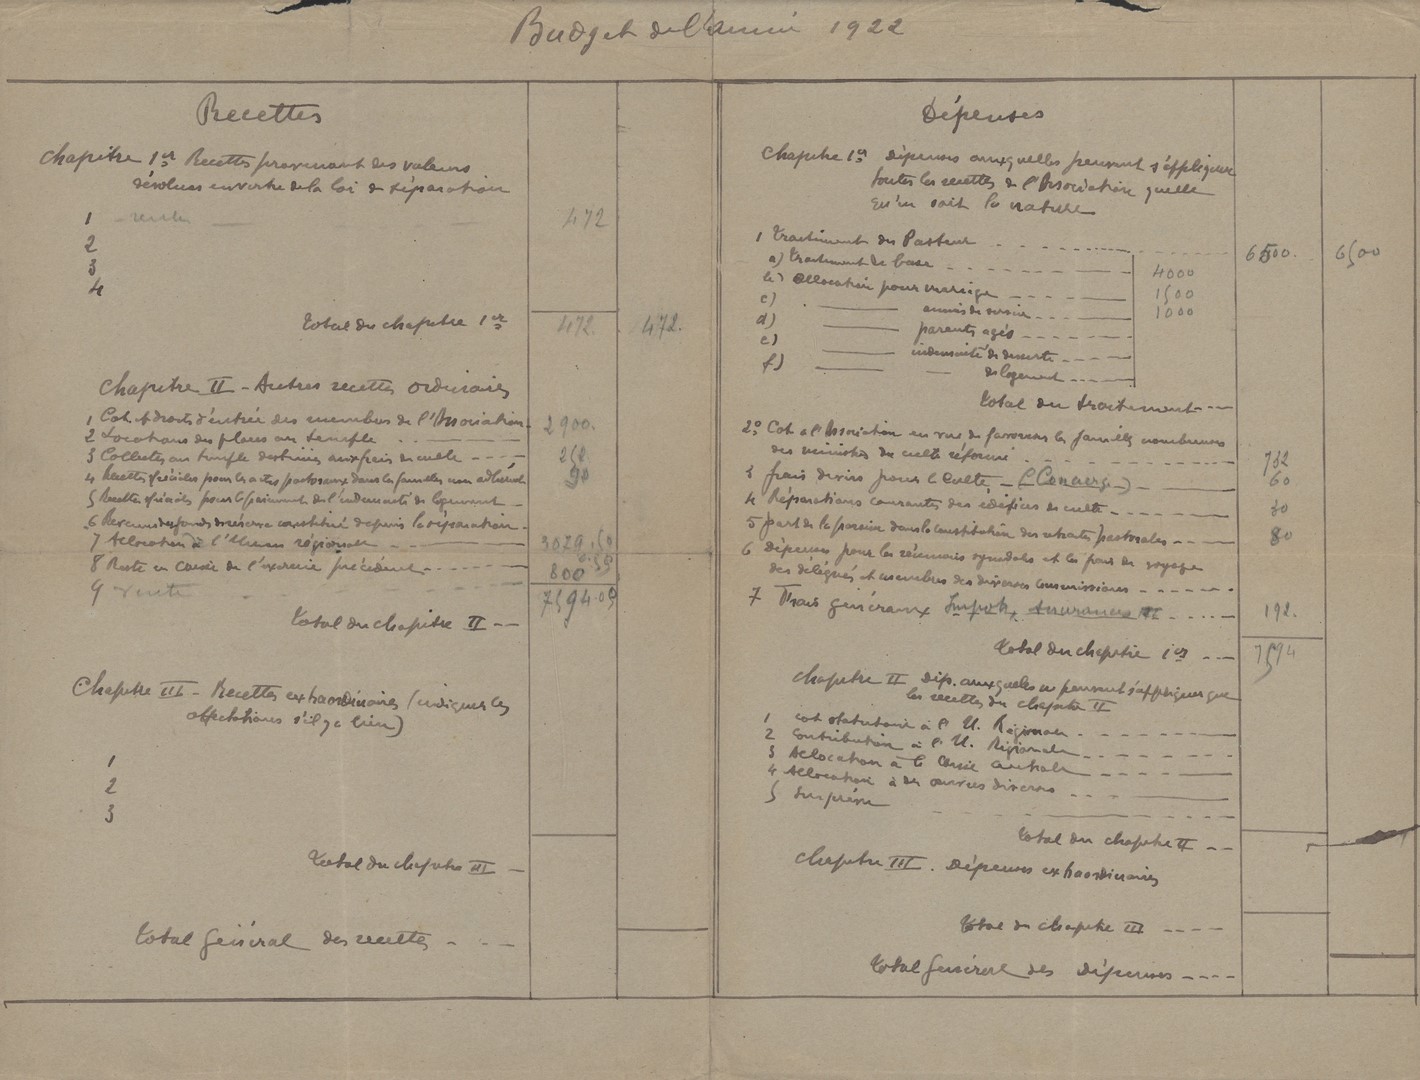 Budget de l'année 1922
Recettes
Chapitre 1er Recettes provenant des valeurs
dévolues en vertu de la loi de séparation
1 - rente 472
2
3
4
Total du chapitre 1er 472. 472.
Chapitre II - Autres recettes ordinaires
1 Cot. et droits d'entrée des membres de l'Association 2900.
2 Locations des places au temple
3 Collectes au temple destinées aux frais du culte
4 Recettes spéciales pour les actes pastoraux dans les familles non adhérentes 90
5 Recettes spéciales pour le paiement de l'indemnité de logement
6 Revenus des fonds de réserve constitué depuis la séparation
7 Allocation à l'Union régionale 3029.50
8 Reste en caisse de l'exercice précédent 800
9 rente
7594.05
Total du chapitre II
Chapitre III - Recettes extraordinaires (indiquer les
affectations s'il y a lieu)
1
2
3
Total du chapitre III
Total Général des recettes
Dépenses
Chapitre 1er dépenses auxquelles peuvent s'appliquer
toutes les recettes de l'Association quelle
qu'en soit la nature
1 Traitement du Pasteur 6500. 6500
a) traitement de base 4000
b) allocation pour mariage 1500
c) années de service 1000
d) parents agés
e) indemnité de desserte
f) de logement
total du traitement
2° Cot. à l'Association en vue de favoriser les familles nombreuses
des ministres du culte réformé 732
3 frais divers pour le Culte - (Concierge) 60
4 Réparations courantes des édifices du culte 30
5 part de la paroisse dans la constitution des retraites pastorales 80
6 Dépenses pour les réunions synodales et les frais de voyage
des délégués et membres des diverses commissions
7 Frais généraux Impots, Assurances 192.
Total du chapitre 1er 7594
Chapitre II Dép. auxquelles ne peuvent s'appliquer que
les recettes du chapitre II
1 cot statutaire à l'U. Régionale
2 Contribution à l'U. Régionale
3 Allocation à la Caisse Centrale
4 Allocation à des œuvres diverses
5 Imprévu
Total du chapitre II
Chapitre III. Dépenses extraordinaires
Total du chapitre III
Total Général des dépenses